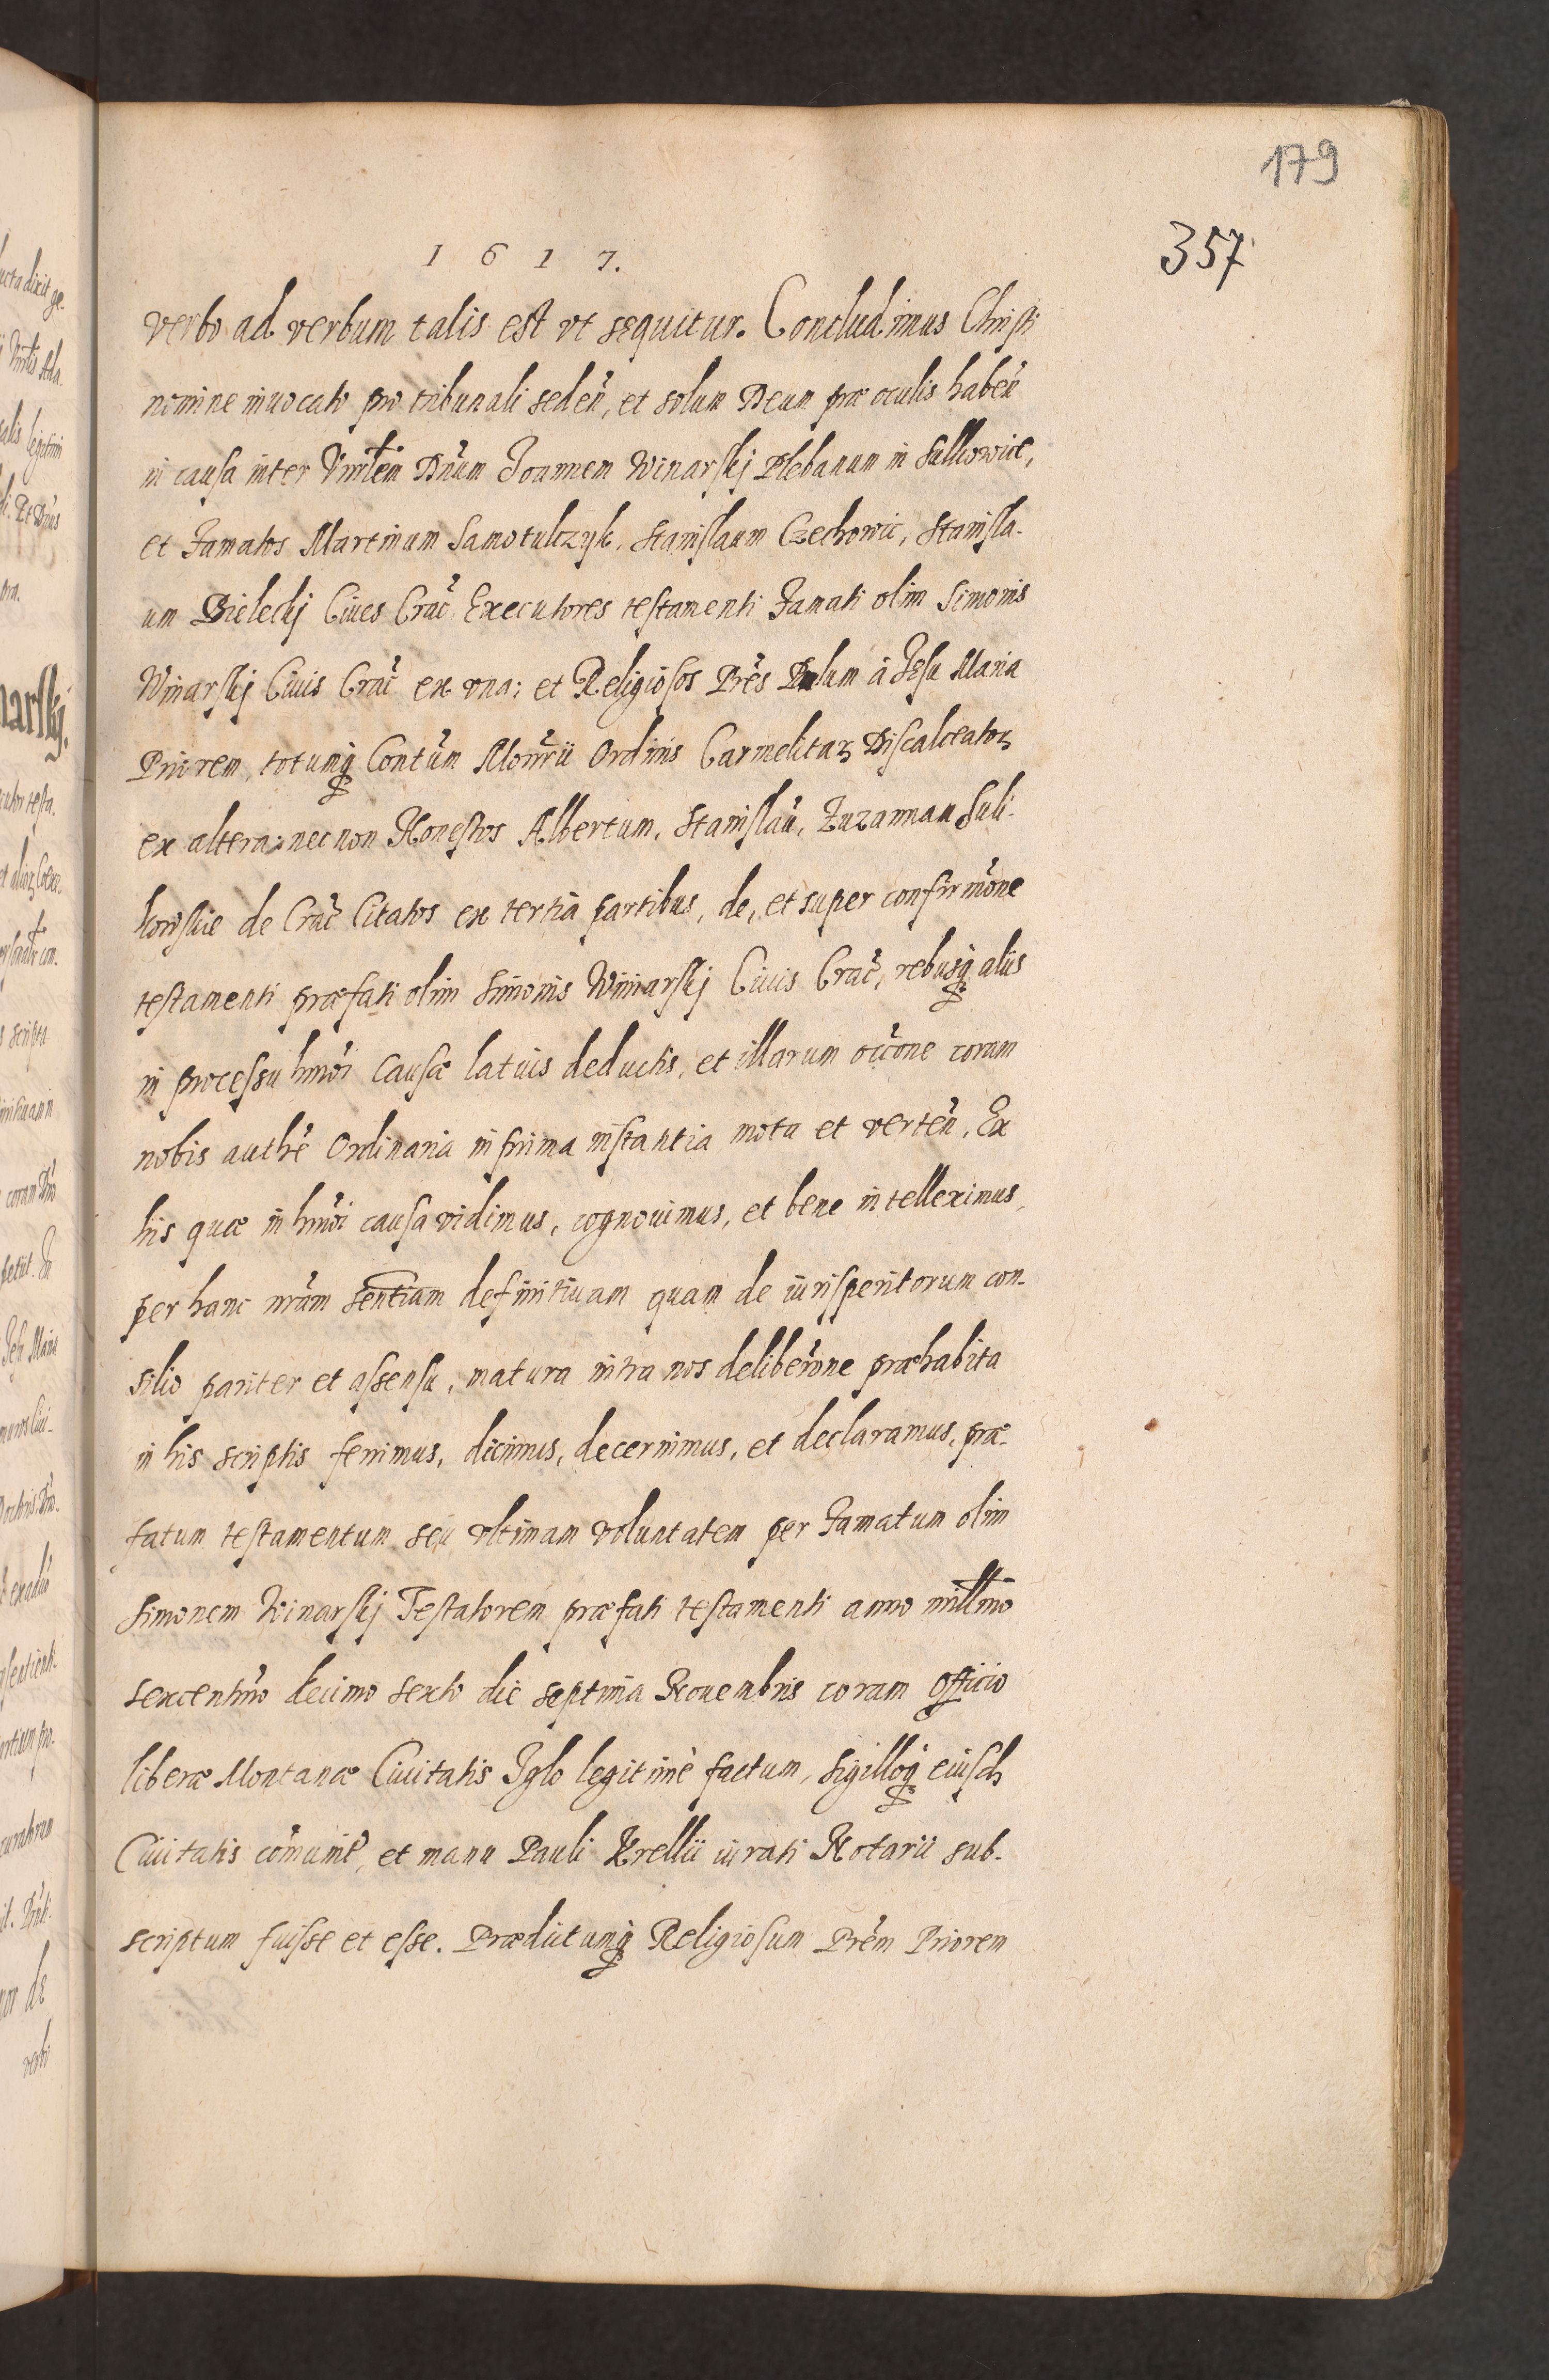 179
357
1617.
verbo ad verbum talis est vt sequitur. Concludimus Christi
nomine inuocato pro tribunali sedeñ, et solum Deum præ oculis habeñ
in causa inter Vnrłem Dnũm Joannem Winarskj Plebanum in Sulkowice,
et Famatos Martinum Samotulczyk, Stanislaum Czechowic, Stanisla-
um Bieleckj Ciues Crac̃ Executores testamenti Famati olim Simonis
Winarskj Ciuis Crac̃ ex vna; et Religiosos Prẽs Paulum à Jesu Maria
Priorem, totumq; Contũm Monrĩi Ordinis Carmelitaꝝ Discalceatoꝝ
ex altera; necnon Honestos Albertum, Stanislaũ, Zuzannam Suli-
kowskie de Crac̃ Citatos ex tertia partibus, de, et super confirmõne
testamenti præfati olim Simonis Winarskj Ciuis Crac̃, rebusq; aliis
in processu hmõi causæ latius deductis, et illarum occõne coram
nobis authẽ Ordinaria in prima instantia mota et verteñ. Ex
his quæ in hmõi causa vidimus, cognouimus, et bene intelleximus,
per hanc nrãm sentiam definitiuam quam de iurisperitorum con-
silio pariter et assensu, matura intra nos deliberõne præhabita
in his scriptis ferimus, dicimus, decernimus, et declaramus, præ-
fatum testamentum seu vltimam voluntatem per Famatum olim
Simonem Winarskj Testatorem præfati testamenti anno millmo
sexcentmõ decimo sexto die septima Nouembris coram Officio
liberæ Montanæ Ciuitatis Jglo legitimè factum, sigilloq; eiusdꝫ
Ciuitatis cõmunit̃, et manu Pauli Krellii iurati Notarii sub-
scriptum fuisse et esse. Prædictumq; Religiosum Prẽm Priorem